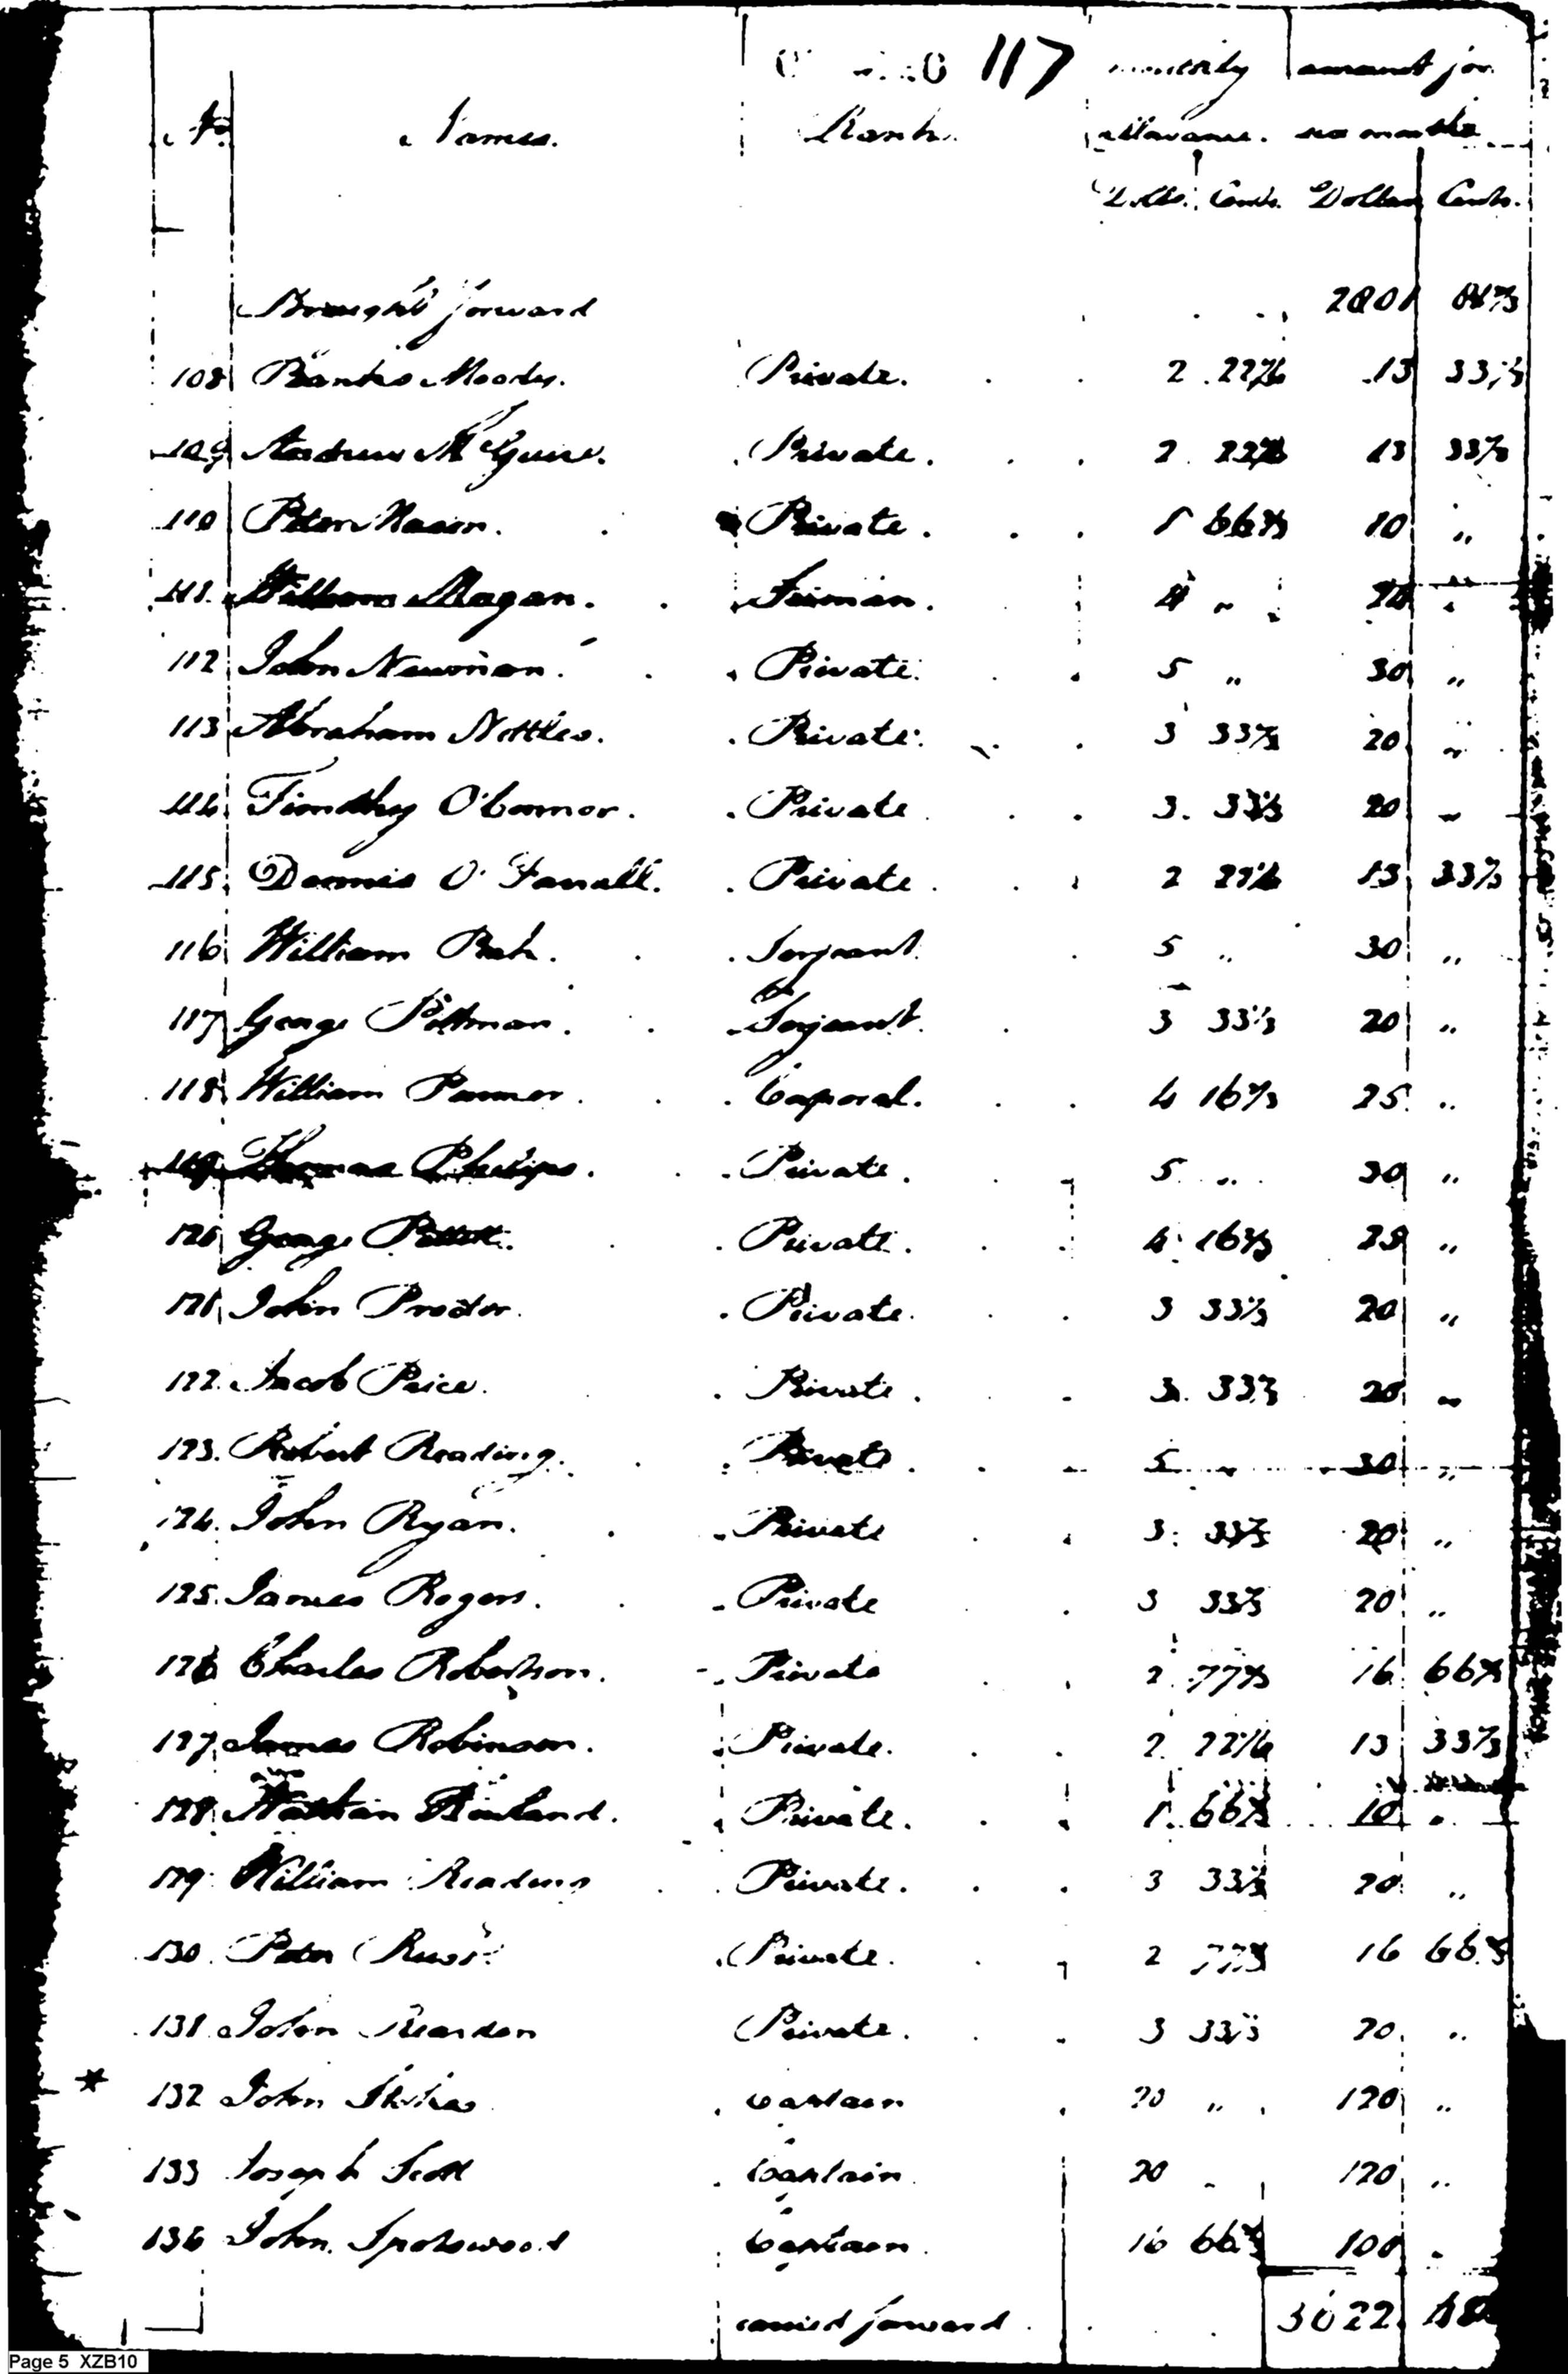 117 monthly amount for
No. Names. Rank. allowance. six months
Dolls. Cents. Dollars Cents.
Brought forward 2801
108 Banks Moody. Private. 2 22 2/6 13 33 1/3
109 Andrew McGuire. Private. 2 22 2/6 13 33 1/3
110 Peter Mason. Private. 1 66 2/3 10 "
111. William Magan. 4 " 24 "
112 John Newman. Private. 5 " 30 "
113 Abraham Nettles. Private. 3 33 1/3 20 "
114. Timothy O'Connor. Private 3. 33 1/3 20 "
115. Dennis O'Farrall. Private. 2 22 2/6 13 33 1/3
116 William Serjeant 5 " 30 "
117 George Pittman. Serjeant. 3 33 1/3 20 "
118 William Corporal. 4 16 2/3 25. "
119. Thomas Phillips. Private. 5 " 30 "
120 George Private. 4 16 2/3 25 "
121 John Proctor. Private. 3 33 1/3 20 "
122. Jacob Price. Private. 3. 33 1/3 20 "
123. Robert Reading. Private. 5 " 30 "
124. John Ryan. Private 3. 33 1/3 20 "
125. James Rogers. Private 3 33 1/3 20 "
126 Charles Robertson. Private 2 77 2/3 16 66 2/3
127 James Robinson. Private. 2 22 2/6 13 33 1/3
128 Nathan Rowland. Private. 1. 66 2/3 10 "
129 William Reading Private. 3 33 1/3 20 "
130. Peter Private. 2 77 2/3 16 66 2/3
131. John Rearden Private. 3 33 1/3 20. "
* 132 John Stokes Captain 20 " 120 "
133 Joseph Scott Captain. 20 " 120 "
134 John Spotswood Captain. 16 66 2/3 100 "
carried forward 3622
Page 5 XZB10